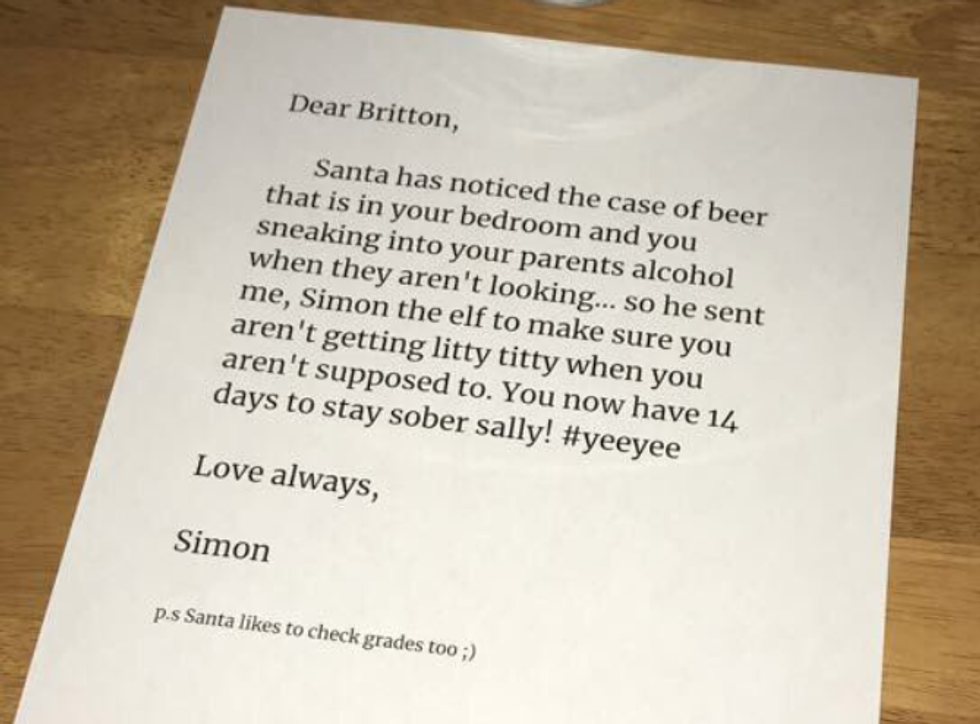 Dear Britton,
Santa has noticed the case of beer
that is in your bedroom and you
sneaking into your parents alcohol
when they aren't looking... so he sent
me, Simon the elf to make sure you
aren't getting litty titty when you
aren't supposed to. You now have 14
days to stay sober sally! #yeeyee
Love always,
Simon
p.s Santa likes to check grades too ;)